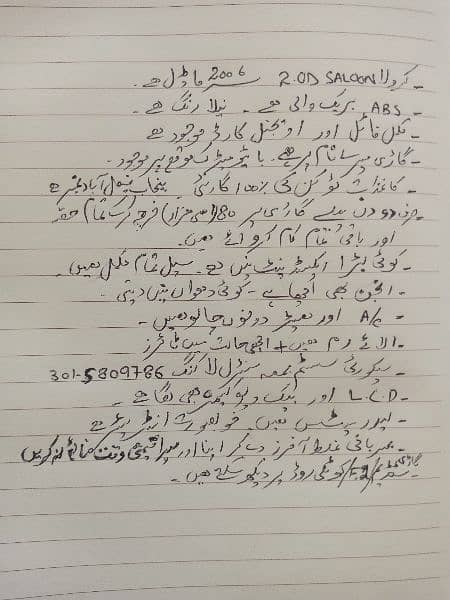 - کرولا 2.0D SALOON 2006 ماڈل ہے۔
- ABS بریک والی ہے - نیلا رنگ ہے -
- مکمل فائل اور اوریجنل کارڈ موجود ہے
- گاڑی میرے نام پر ہے۔ بائیومیٹرک موقع پر موجود -
- کاغذات ٹوکن کی 100% گارنٹی پنجاب فیصل آباد نمبر ہے
صرف دو دن پہلے گاڑی پر 80(اسی ہزار) خرچ کر کے تمام
اور باقی تمام کام کروائے ہیں۔
- کوئی بڑا ایکسیڈینٹ نہیں ہے - سیل تمام مکمل ہیں۔
- انجن بھی اچھا ہے - کوئی دھواں نہیں دیتی -
- A/C اور ہیٹر دونوں چالو ہیں -
- الائے رم ہیں + اچھی حالت میں ٹائرز
- سیکورٹی سسٹم بمعہ سنٹرل لاکنگ 301-5809786
- L.C.D اور بیک ویو کیمرہ بھی لگا ہے -
- لیدر پوشش ہیں - خوبصورت انٹیریر ہے
- مہربانی غلط آفرز دے کر اپنا اور میرا قیمتی وقت ضائع نہ کریں
- گاڑی روڈ پر دیکھ سکتے ہیں -